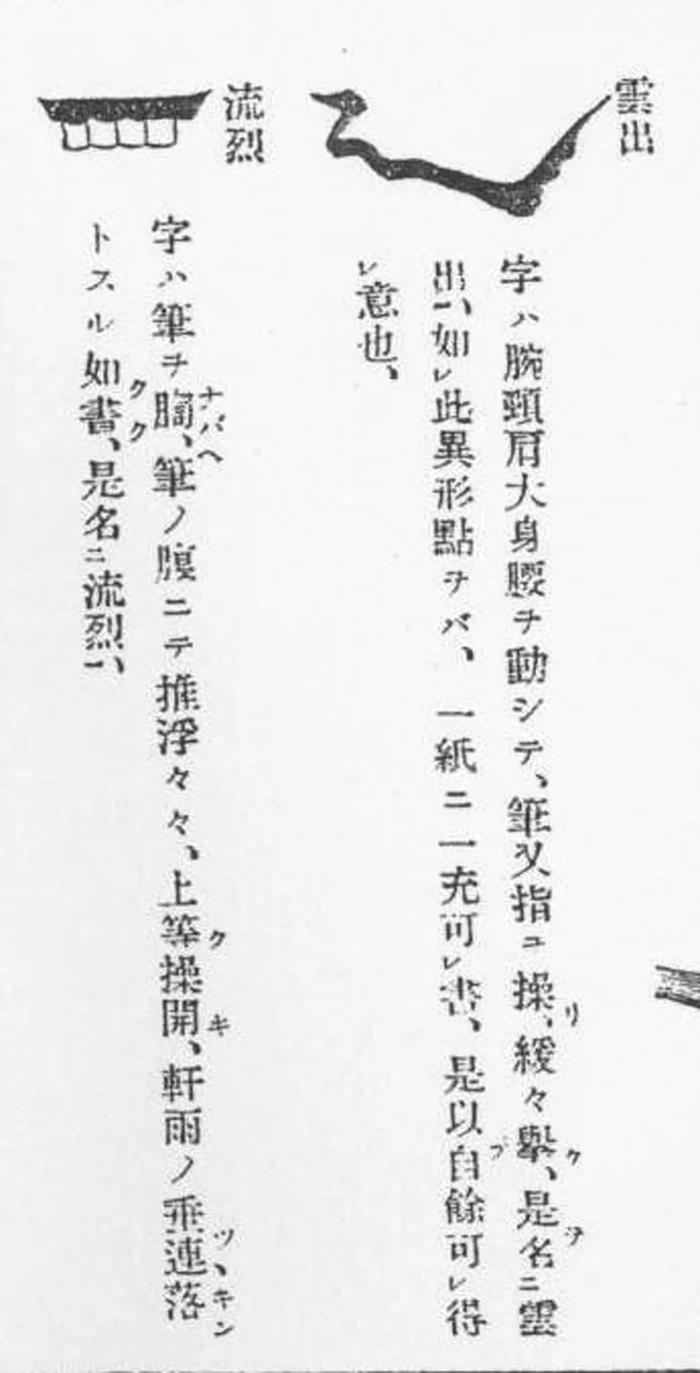 雲出
字ハ腕頸肩大身腰チ動シテ、筆又指ニ操、リ緩々擧、ク是名ヲニ雲
出ハ、如レ此異形點ヲバ、一紙ニ一充可レ書、是以自餘可レ得
レ意也、
流烈
字ハ筆チ胸、ナバヘ筆ノ腹ニテ推浮々々、上等ク操開、キ軒雨ノ垂連落ツヽキン
トスル如ク書、ク是名ニ流烈ハ、